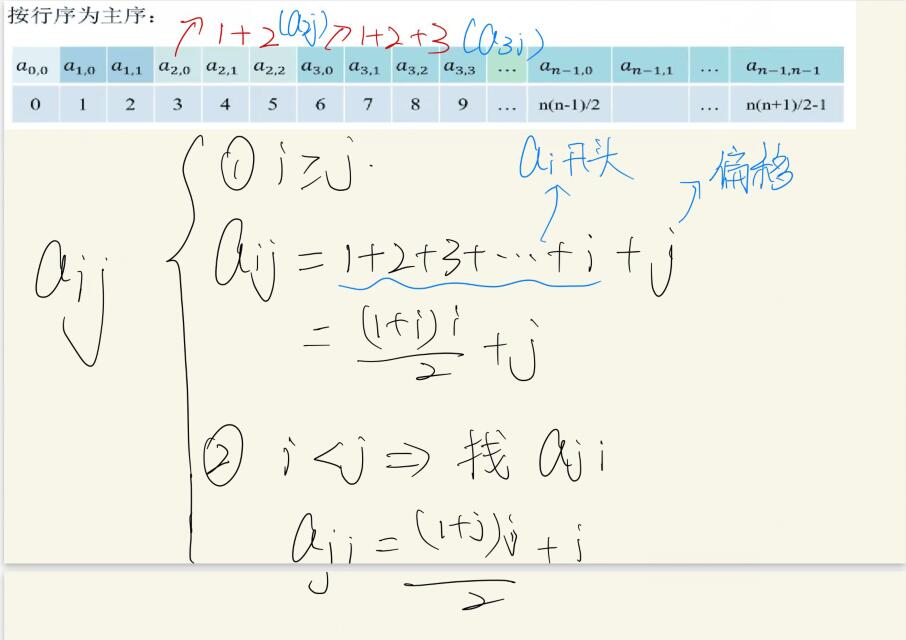 按行序为主序：
1+2 (a2j) 1+2+3 (a3j)
a0,0 a1,0 a1,1 a2,0 a2,1 a2,2 a3,0 a3,1 a3,2 a3,3 … an−1,0 an−1,1 … an−1,n−1
0 1 2 3 4 5 6 7 8 9 … n(n-1)/2 … n(n+1)/2-1
① i≥j. ai开头 偏移
aij
aij = 1+2+3+…+i +j
= (1+i)i/2 +j
② i<j ⇒ 找 aji
aji = (1+j)j/2 + i